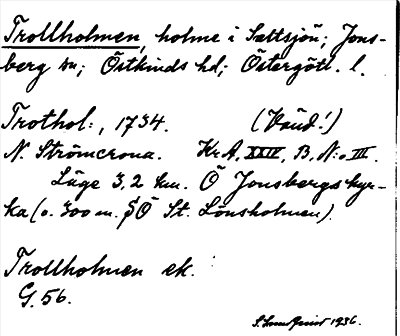 Trollholmen, holme i Sættsjön; Jons-
berg sn; Östkinds hd; Östergötl. l.
Trothol:, 1734.
N. Strömcrona. Kr.A. XXIV, B, N:o III.
Läge 3,2 km. Ö Jonsbergs kyr-
ka (o. 300 m. SÖ St. Lönsholmen).
Trollholmen ek.
G. 56.
S. 1936.